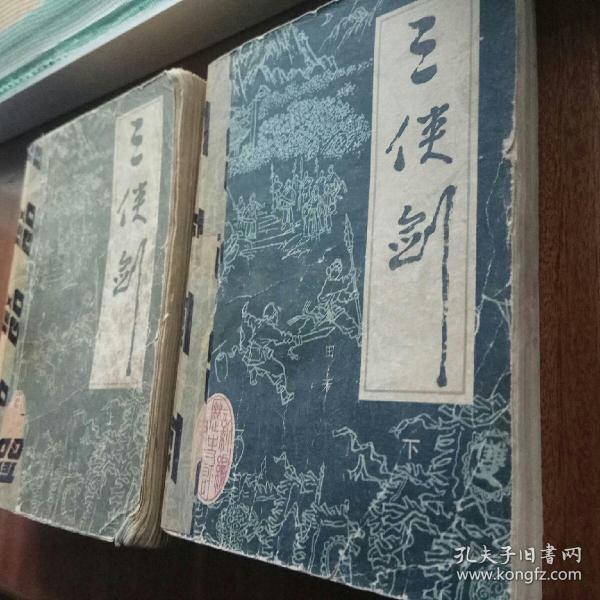 三侠剑
三侠剑
下
孔夫子旧书网
www.kongfz.com